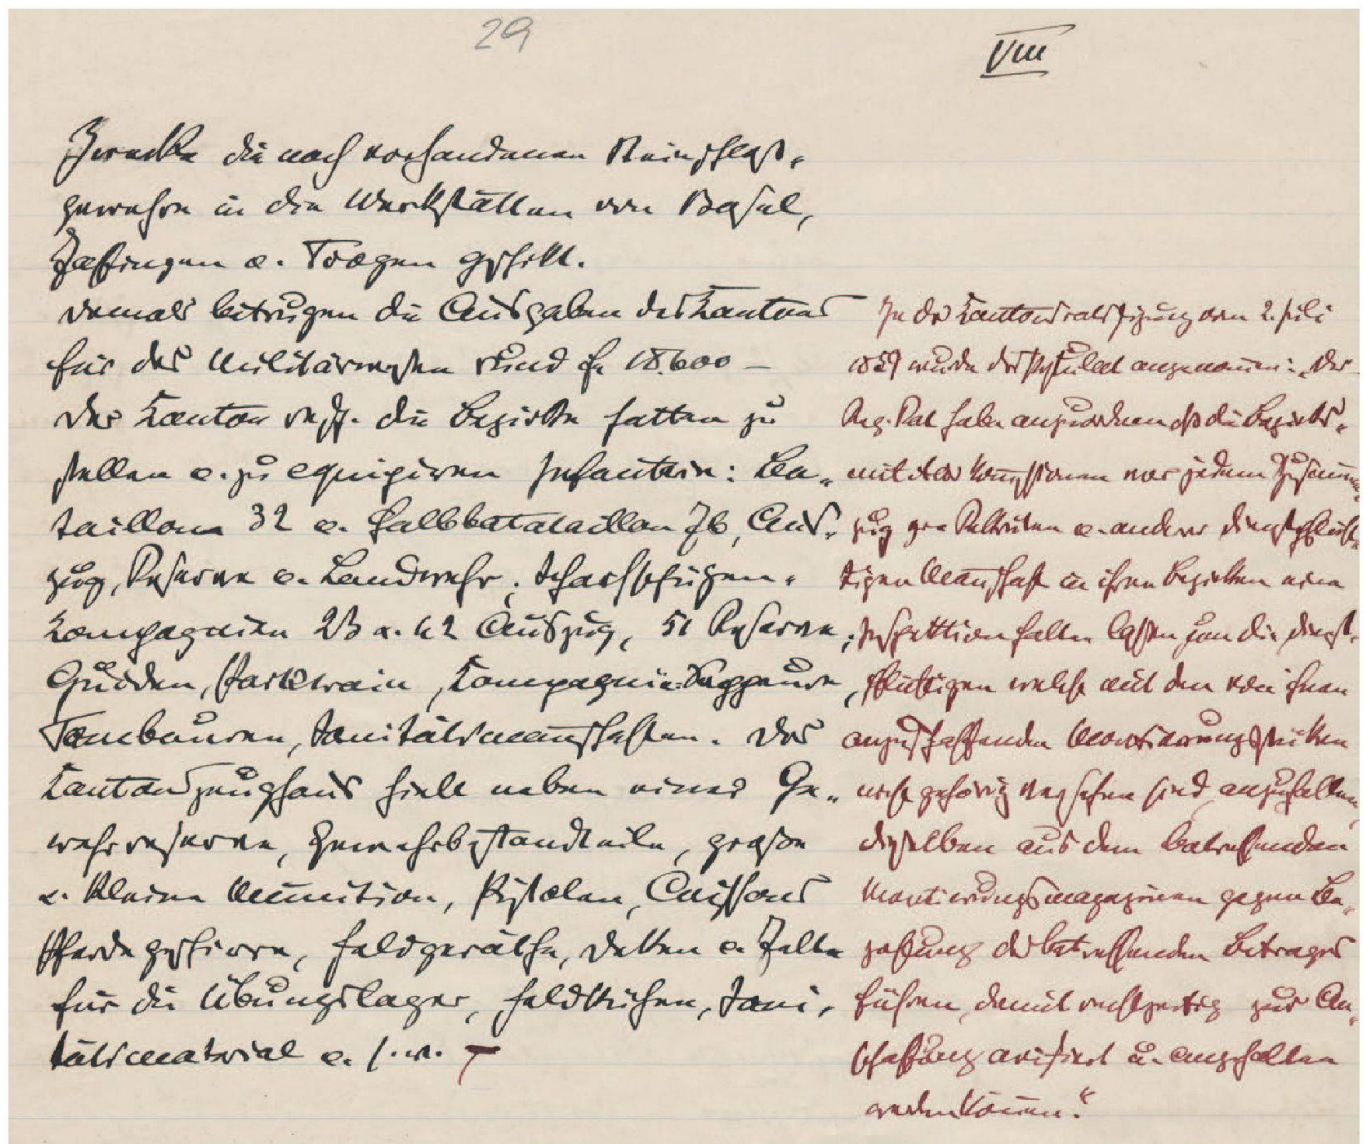 29
VIII
Zwecke die noch vorhandenen Steinschloß-
gewehre in den Werkstätten von Basel,
Zofingen u. Trogen geschickt.
damals betrugen die Ausgaben des Kantons
für das Militärwesen rund fr 18.600 –
Der Kanton resp. die Bezirke hatten zu
stellen u. zu equipiren Infanterie: Ba-
taillone 32 u. Halbbatataillon 76, Aus-
zug, Reserve u. Landwehr; Scharfschützen-
Kompagnien 23 u. 42 Auszug, 51 Reserve,
Guiden, Parktrain, Kompagnie Sappeure,
Tambouren, Sanitätsmannschaften. Das
Kantonszeughaus hielt neben einer Ge-
wehrreserve, Gewehrbestandteile, grosse
u. kleine Munition, Pistolen, Caissons
Pferdegeschirre, Feldgeräthe, Decken u. Zelte
für die Übungslager, Feldküchen, Sani-
tätsmaterial u. s. w.
In der Kantonsratssitzung vom 2. Juli
1859 wurde das Postulat angenommen: „Der
Reg. Rat habe anzuordnen daß die Bezirks-
militär Kommissionen vor jedem Zusammen-
zug der Rekruten u. anderer dienstpflich-
tigen Mannschaft in ihren Bezirken eine
Inspektion halten lassen, um die dienst-
pflichtigen welche mit den von ihnen
anzuschaffenden Montierungsstücken
nicht gehörig versehen sind, anzuhalten,
dieselben aus dem betreffenden
Montirungsmagazinen gegen Be-
zahlung des betreffenden Betrages
führen, damit rechtzeitig zur An-
schaffung avisiert u. angehalten
werden können."